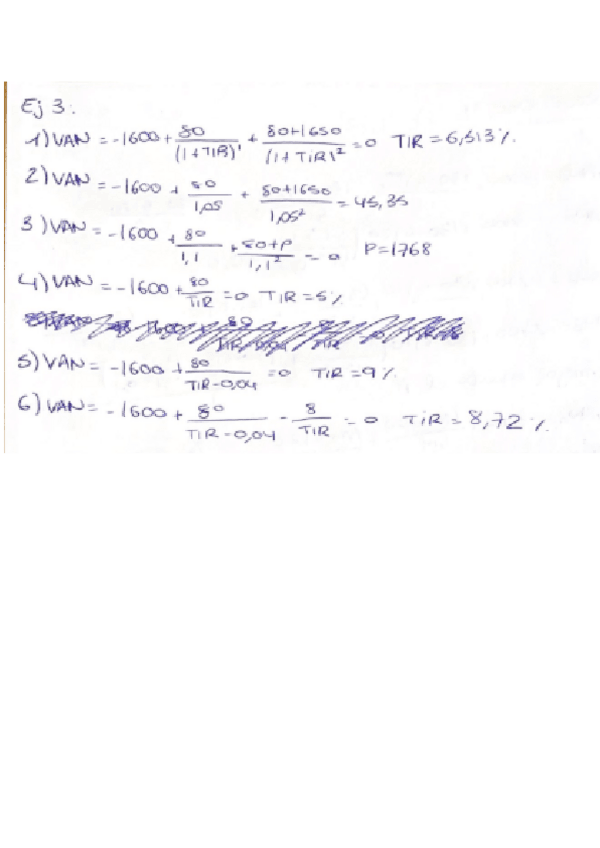 Ej 3.
1) VAN = -1600 + 80/(1+TIR)¹ + 80+1650/(1+TIR)² = 0 TIR = 6,513%.
2) VAN = -1600 + 80/1,05 + 80+1650/1,05² = 45,35
3) VAN = -1600 + 80/1,1 + 80+P/1,1² = 0 P=1768
4) VAN = -1600 + 80/TIR = 0 TIR = 5%
5) VAN = -1600 + 80/TIR-0,04 = 0 TIR = 9%.
6) VAN = -1600 + 80/TIR-0,04 - 8/TIR = 0 TIR = 8,72%.